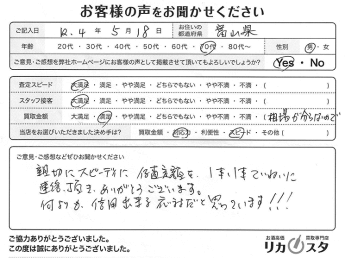 お客様の声をお聞かせください
ご記入日 R.4年 5月 18日 お住いの都道府県 富山県
年齢 20代・30代・40代・50代・60代・70代・80代〜 性別 男・女
ご意見・ご感想を弊社ホームページにお客様の声として掲載させて頂いてもよろしいでしょうか? Yes・No
査定スピード 大満足・満足・やや満足・どちらでもない・やや不満・不満・( )
スタッフ接客 大満足・満足・やや満足・どちらでもない・やや不満・不満・( )
買取金額 大満足・満足・やや満足・どちらでもない・やや不満・不満・(相場が分からないので)
当店をお選びいただきました決め手は? 買取金額・対応力・利便性・スピード・その他( )
ご意見・ご感想などぜひお聞かせください
親切にスピーディに 査定金額を、1本1本ていねいに
連絡頂き、ありがとうございます。
何よりも 信用出来る だと思っています!!!
ご協力ありがとうございました。
この度は誠にありがとうございました。
お酒高価 買取専門店
リカスタ